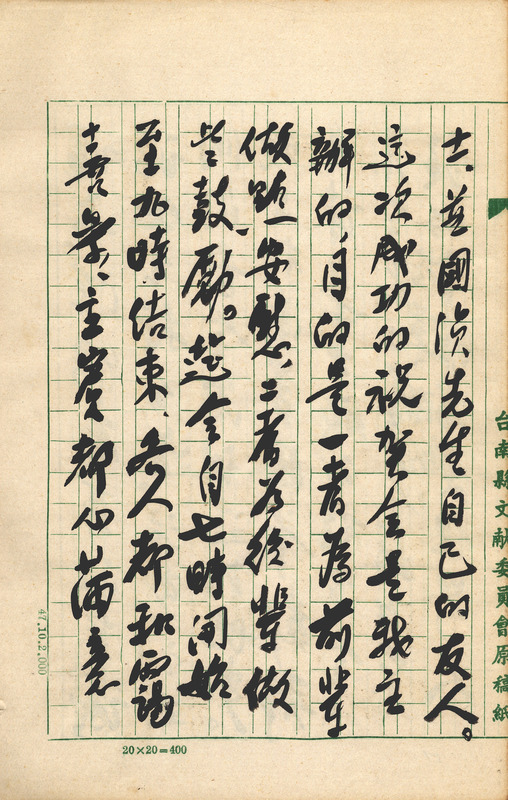 台南縣文献委員會原稿紙
士、並國先生自己的友人。
這次成功的祝賀会是我主
辦的、目的是一者為前輩
做點安慰、二者为後輩做
些鼓勵。筵会自七時開始
至九時结束、各人都和靄
主賓都心滿意
47.10.2,000
20×20=400